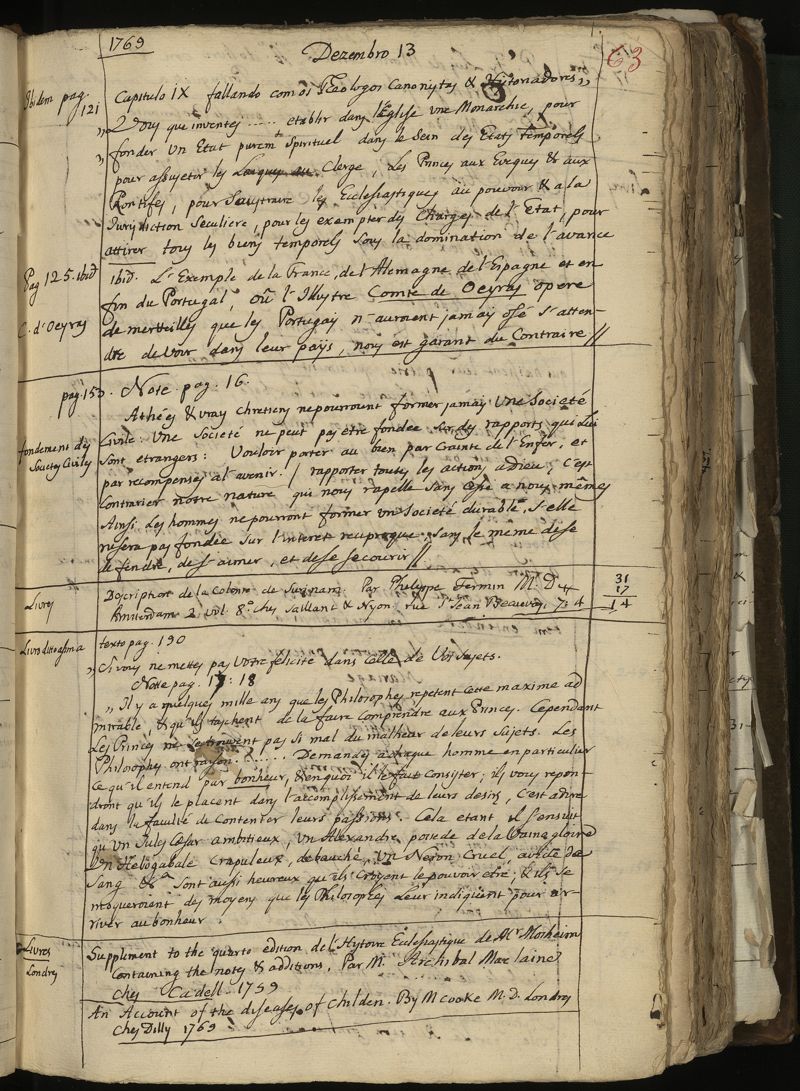 1769
Dezembro 13
63
Ibidem pag. 121
Capitulo IX fallando com os Teologos Canonistas & Historiadores,,
,, Vous que inventés ..... etablir dans l'Eglise une Monarchie, pour
,, fonder un Etat puremt Spirituel dans le Sein des Etats temporels
pour assujetir les Clerge, les Princes aux Eveques & aux
Pontifes, pour Soustraire les Ecclesiastiques au pouvoir & a la
Jurisdiction Seculiere, pour les exempter des Charges de l'Etat, pour
attirer tous les biens temporels Sous la domination de l'avance
Pag 125. ibid
ibid. L' Exemple de la France, de l'Alemagne de l'Espagne et en
fin du Portugal, oû l'Illustre Comte de Oeyras opere
C. d'Oeyras
de merveilles que les Portugais n-auroient jamais osé s'atten-
dre de voir dans leur païs, nous est garant du Contraire //
pag. 150. Note pag. 16.
Athées & vray Chretiens ne pourroient former jamais une Societé
fondement des Societes Civiles
Civile: Une Societé ne peut pas etre fondée sur des rapports qui lui
Sont etrangers: Vouloir porter au bien par Crainte de l'Enfer, et
par recompenses al'avenir! / rapporter toutes les actions adieu, c'est
Contrarier notre nature qui nous rapelle Sans cesse a nous mêmes
Ainsi les hommes ne pourront former un Societé durable, s'elle
nesera pas fondée Sur l'interet reciproque. Sans le même de se
defendre, de s'aimer, et de se secourir //
Livres
Description de la Colonie de Surinam. Par Philippe Fermin M. D
Amsterdam 2 vol. 8.º chez Saillant & Nyon, rue St Jean Beauvois, 7 s 4
31
17
14
Livro dito assima
texto pag. 190
,, Si vous ne mettes pas votre felicité dans Celle de Vos Sujets.
Notte pag. 17: 18
,, Il y a quelques mille ans que les Philosophes repetent Cette maxime ad
mirable, & qu'ils tachent de la faire comprendre aux Princes. Cependant
Les Princes ne se trouvent pas si mal du malheur de leurs Sujets. Les
Philosophes ont rayson: ...... Demandes a chaque homme en particulier
Ce qu'il entend par bonheur, & en quoi il le faut Consister; ils vous repon-
dront qu'ils le placent dans l'accomplissement de leurs desirs, c'est adire
dans la faculté de Contenter leurs passions. Cela etant il s'ensuit
qu'un Jules Cesar ambitieux, un Alexandre posede de la Vaine gloire
Un Heliogabale Crapuleux, debauché, un Neron Cruel, avide de
Sang &a Sont aussi heureux qu'ils Croyent le pouvoir etre; & ils se
moqueroient des moyens que les Philosophes leur indiquent pour ar-
river au bonheur.
Livres
Londres
Supplement to the quarto edition de l'Hystoire Ecclesiastique de Mr Mosheim
Containing the notes & additions, Par M. Archibal Maclaine
chez Cadell. 1759
An Account of the diseases of Childen. By M Cooke M. D. Londres
chez Dilly 1769